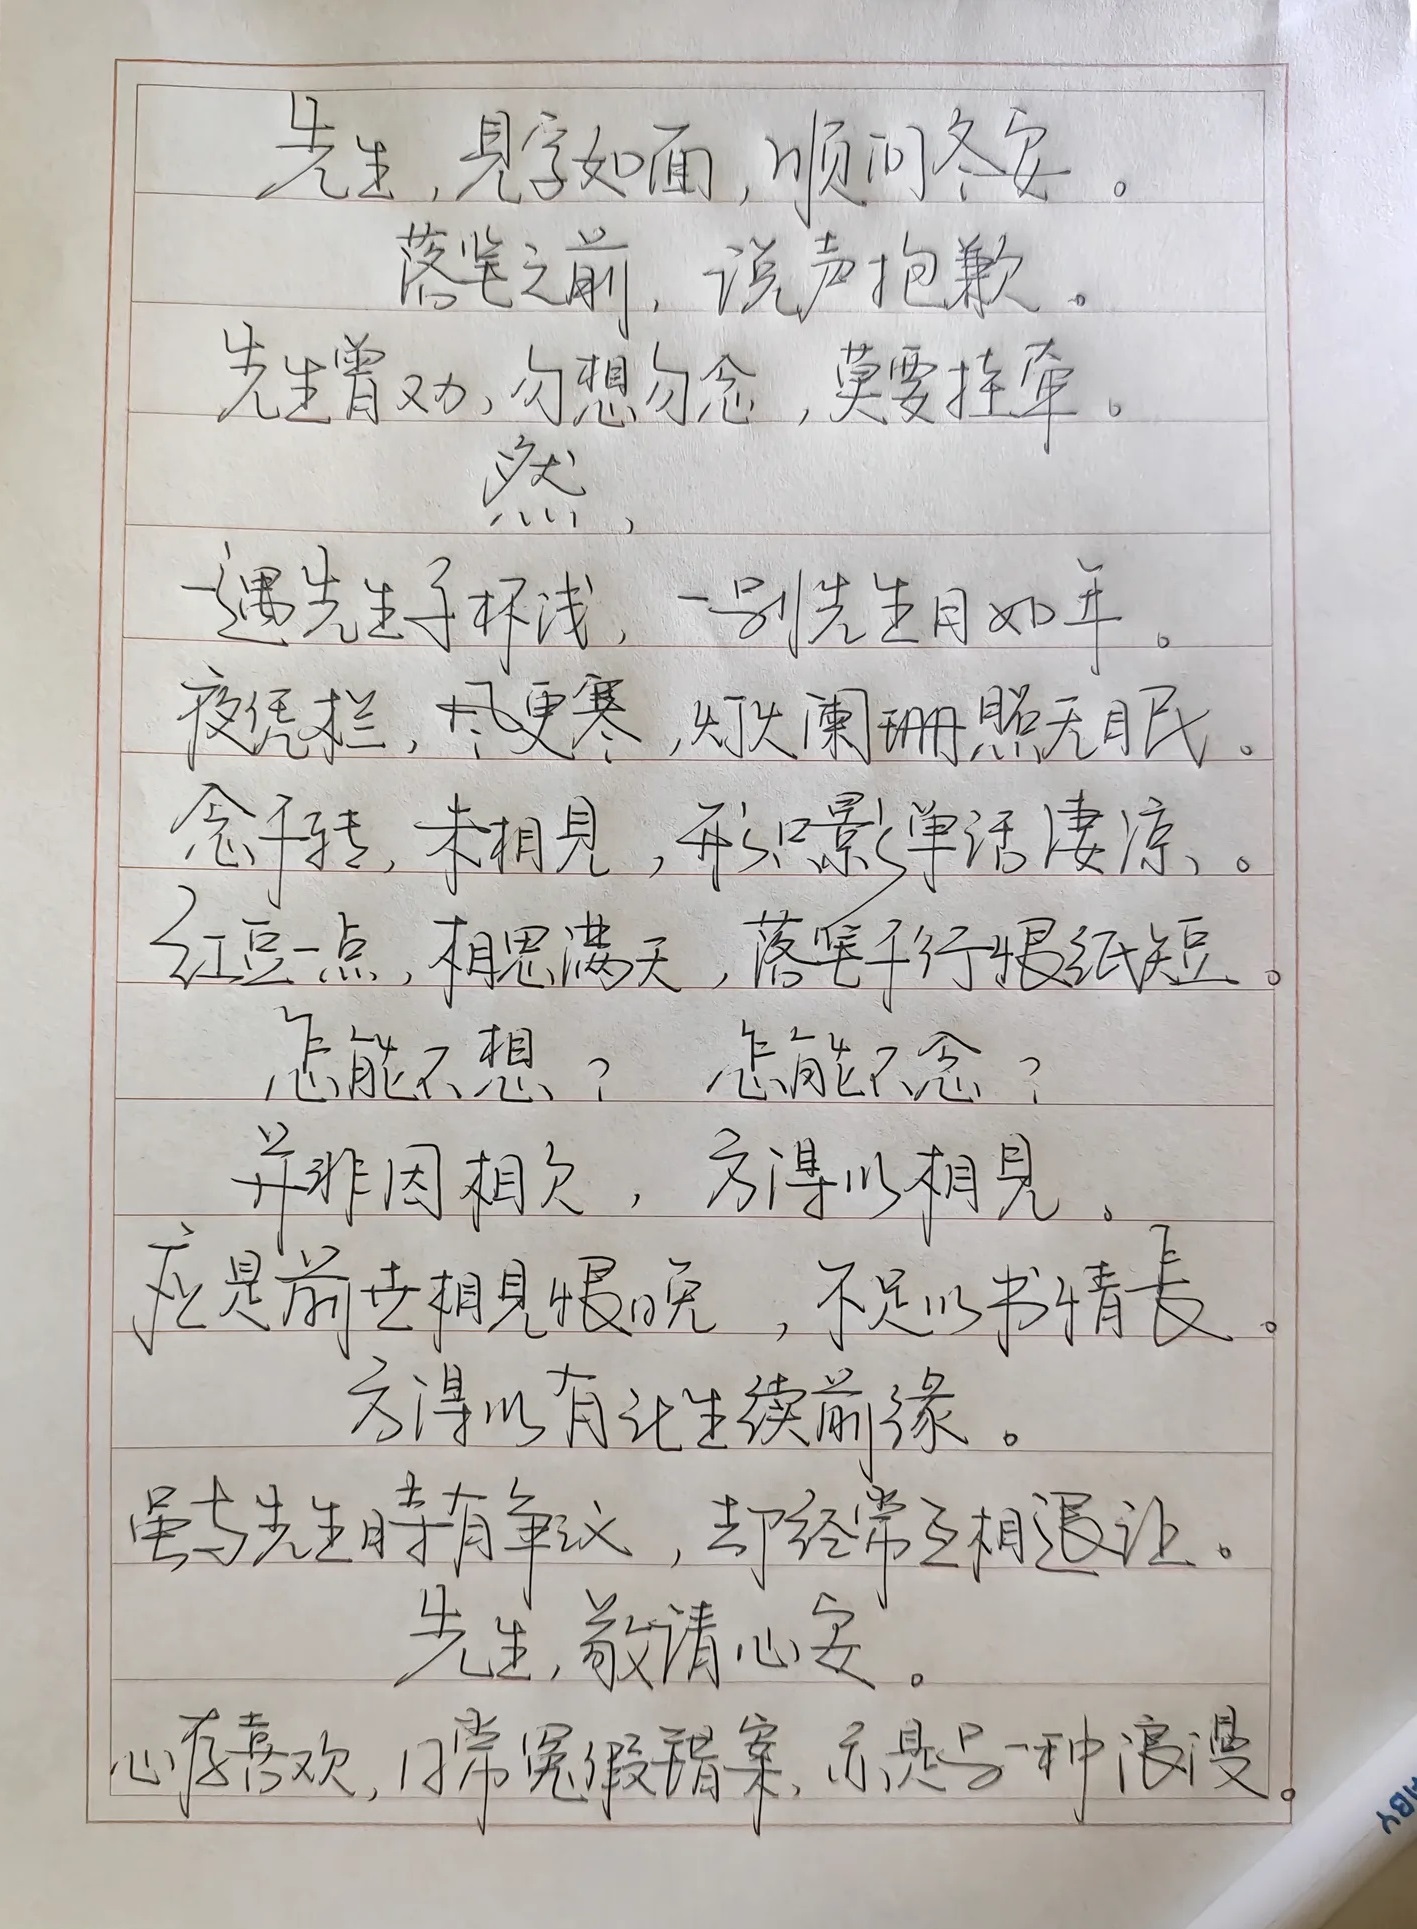 先生,見字如面,顺问冬安。
落笔之前,说声抱歉。
先生曾劝,勿想勿念,莫要挂牵。
然,
一遇先生手杯浅,一别先生日如年。
夜凭栏,风更寒,灯火阑珊照无眠。
念千转,未相見,形只影单话凄凉。
红豆一点,相思满天,落笔千行恨纸短。
怎能不想?怎能不念?
并非因相欠,方得以相見。
应是前世相見恨晚,不足以书情長。
方得以有此生续前缘。
虽与先生時有争议,却经常互相退让。
先生,敬请心安。
心存喜欢,日常冤假错案,亦是另一种浪漫。
ABY